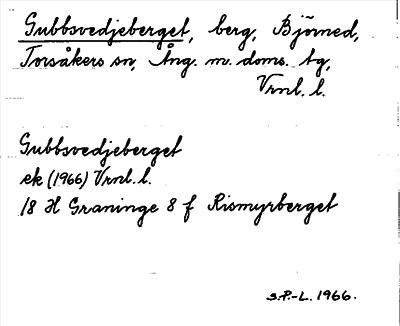 Gubbsvedjeberget, berg, Björned,
Torsåkers sn, Ång. m. doms. tg,
Vrnl. l.
Gubbsvedjeberget
ek (1966) Vrnl. l.
18 H Graninge 8 f Rismyrberget
S.P.-L. 1966.